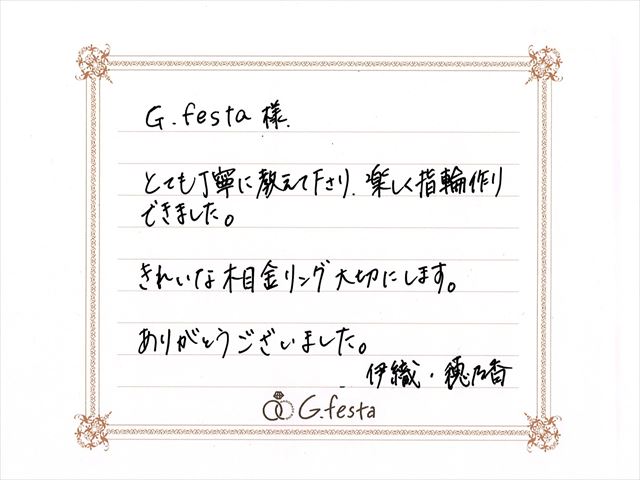 G.festa 様.
とても丁寧に教えて下さり、楽しく指輪作り
できました。
きれいな木目金リング大切にします。
ありがとうございました。
伊織・穂乃香
G.festa